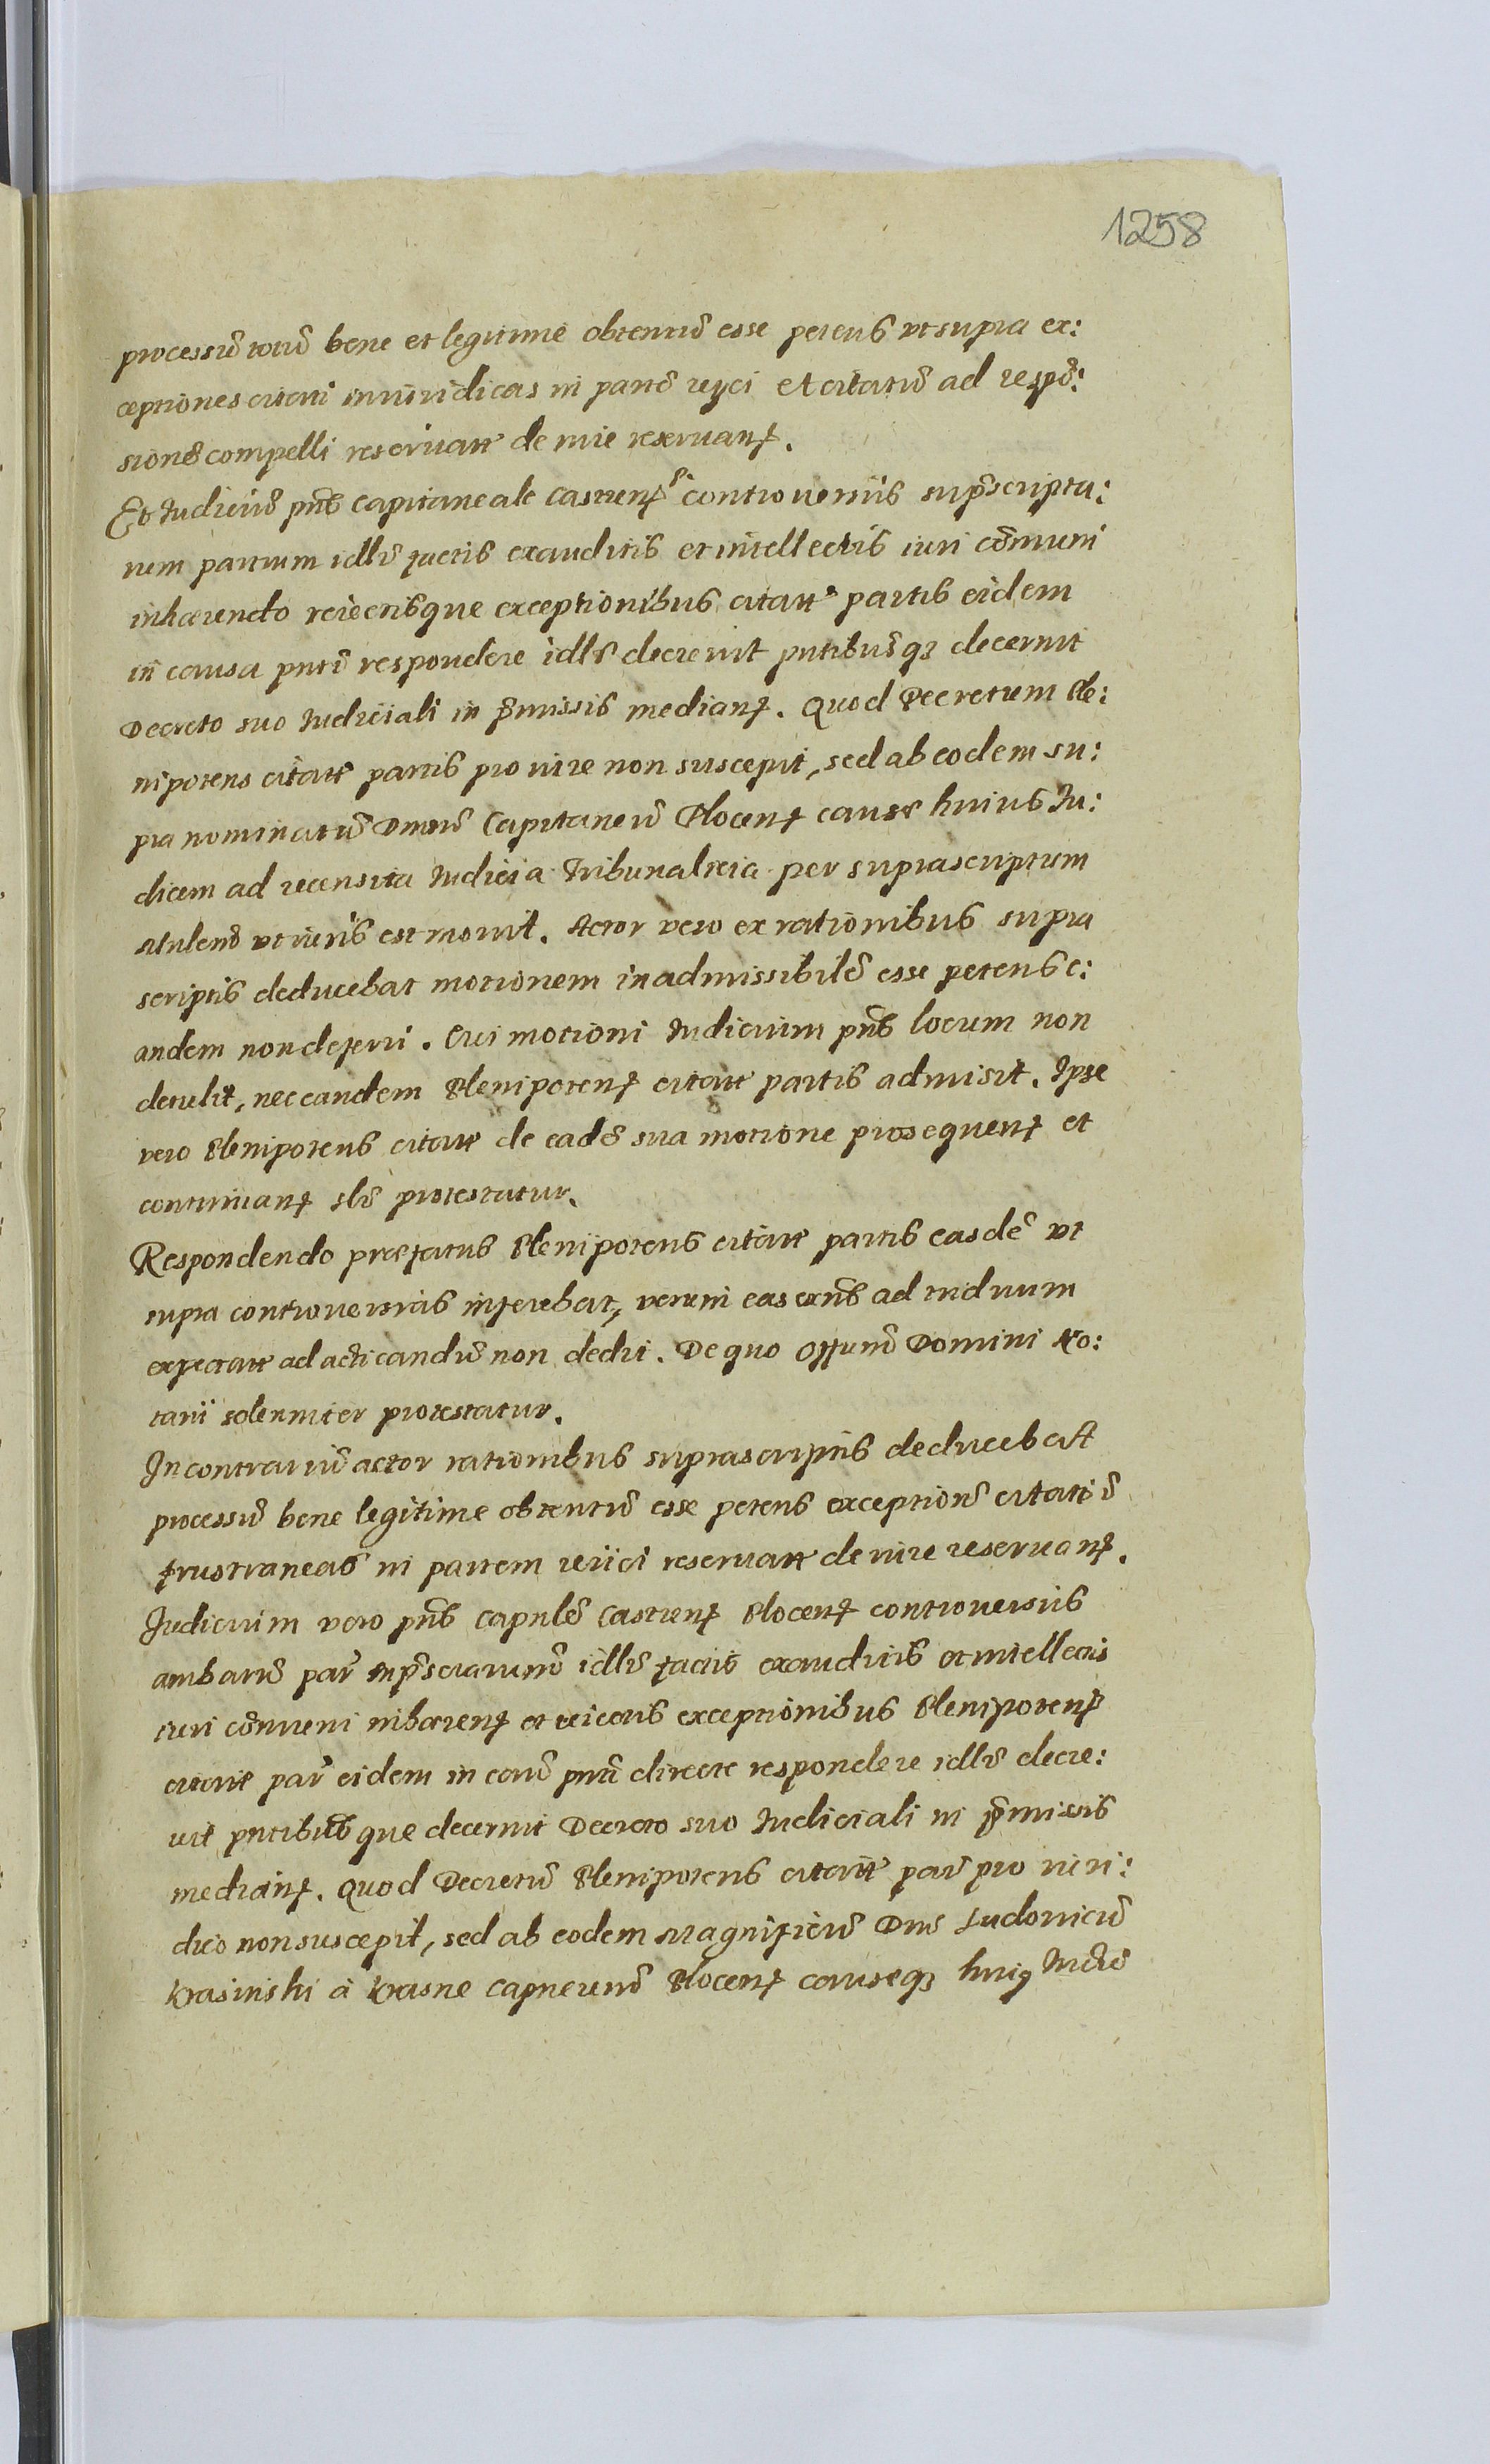 1258
processũ totũ bene et legitime obtentũ esse petens vt supra ex:
ceptiones citati iniuridicas in partẽ reijci et citatũ ad respõ:
sionẽ compelli reservatt de iure reseruanɟ.
Et Iudiciũ pñs Capitaneale Castrenɟ controuersiis supᷓscripta:
rum partium idlr̃ factis exauditis et intellectis iuri cõmuni
inhærendo reiectisque exceptionibus citatt partis eidem
in causa pnti respondere idlr̃ decreuit pntibusqʒ decernit
Decreto suo Iudiciali in pᷓmissis medianɟ. Quod Decretum Ple:
nipotens citatt partis pro iure non suscepit, sed ab eodem su:
pra nominatũ Dnũ Capitaneũ Plocenɟ causæ huius Iu:
dicem ad recensita Iudicia Tribunalitia per suprascriptum
Attulenõ vt iuris est mouit. Actor vero ex rationibus supra
scriptis deducebat motionem inadmissibilẽ esse petens e:
andem non deferri. Cui motioni Iudicium pñs locum non
detulit, nec eandem Plenipotenɟ citatt partis admisit. Ipse
vero Plenipotens citatt de eadẽ sua motione prosequenɟ et
continuanɟ slr̃ protestatur.
Respondendo præfatus Plenipotens citatt partis easdẽ vt
supra controuersias inferebat, verum eas exñs ad triduum
expectatt ad acticandũ non dedi. De quo offium Domini No:
tarii solenniter protestatur.
In contrariũ actor rationibus suprascriptis deducebat
processũ bene legitime obtentũ esse petens exceptionẽ citati ũ
frustraneas in partem reiici reseruatt de iure reseruanɟ.
Iudicium vero pñs Capnlẽ Castrenɟ Plocenɟ controuersiis
ambarũ par̃ supᷓscrarumũ idlr̃ factis exauditis et intellectis
iuri cõmuni inhærenɟ et reiectis exceptionibus Plenipotenɟ
citatt par̃ eidem in causã pnti directe respondere idlr̃ decre:
uit pntibusque decernit Decreto suo Iudiciali in pᷓmissis
medianɟ. Quod Decretũ Plenipotens citatt par̃ pro iuri:
dico non suscepit, sed ab eodem Magnificũ Dnũ Ludouicũ
Krasinski à Krasne Capneum Plocenɟ causæqʒ huiq Iudicẽ